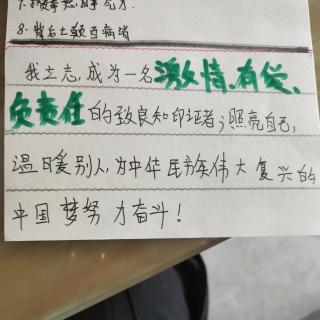 8. 背后七颠百病消
我立志,成为一名激情、有爱、
负责任的致良知印证者;照亮自己,
温暖别人,为中华民族伟大复兴的
中国梦努力奋斗!